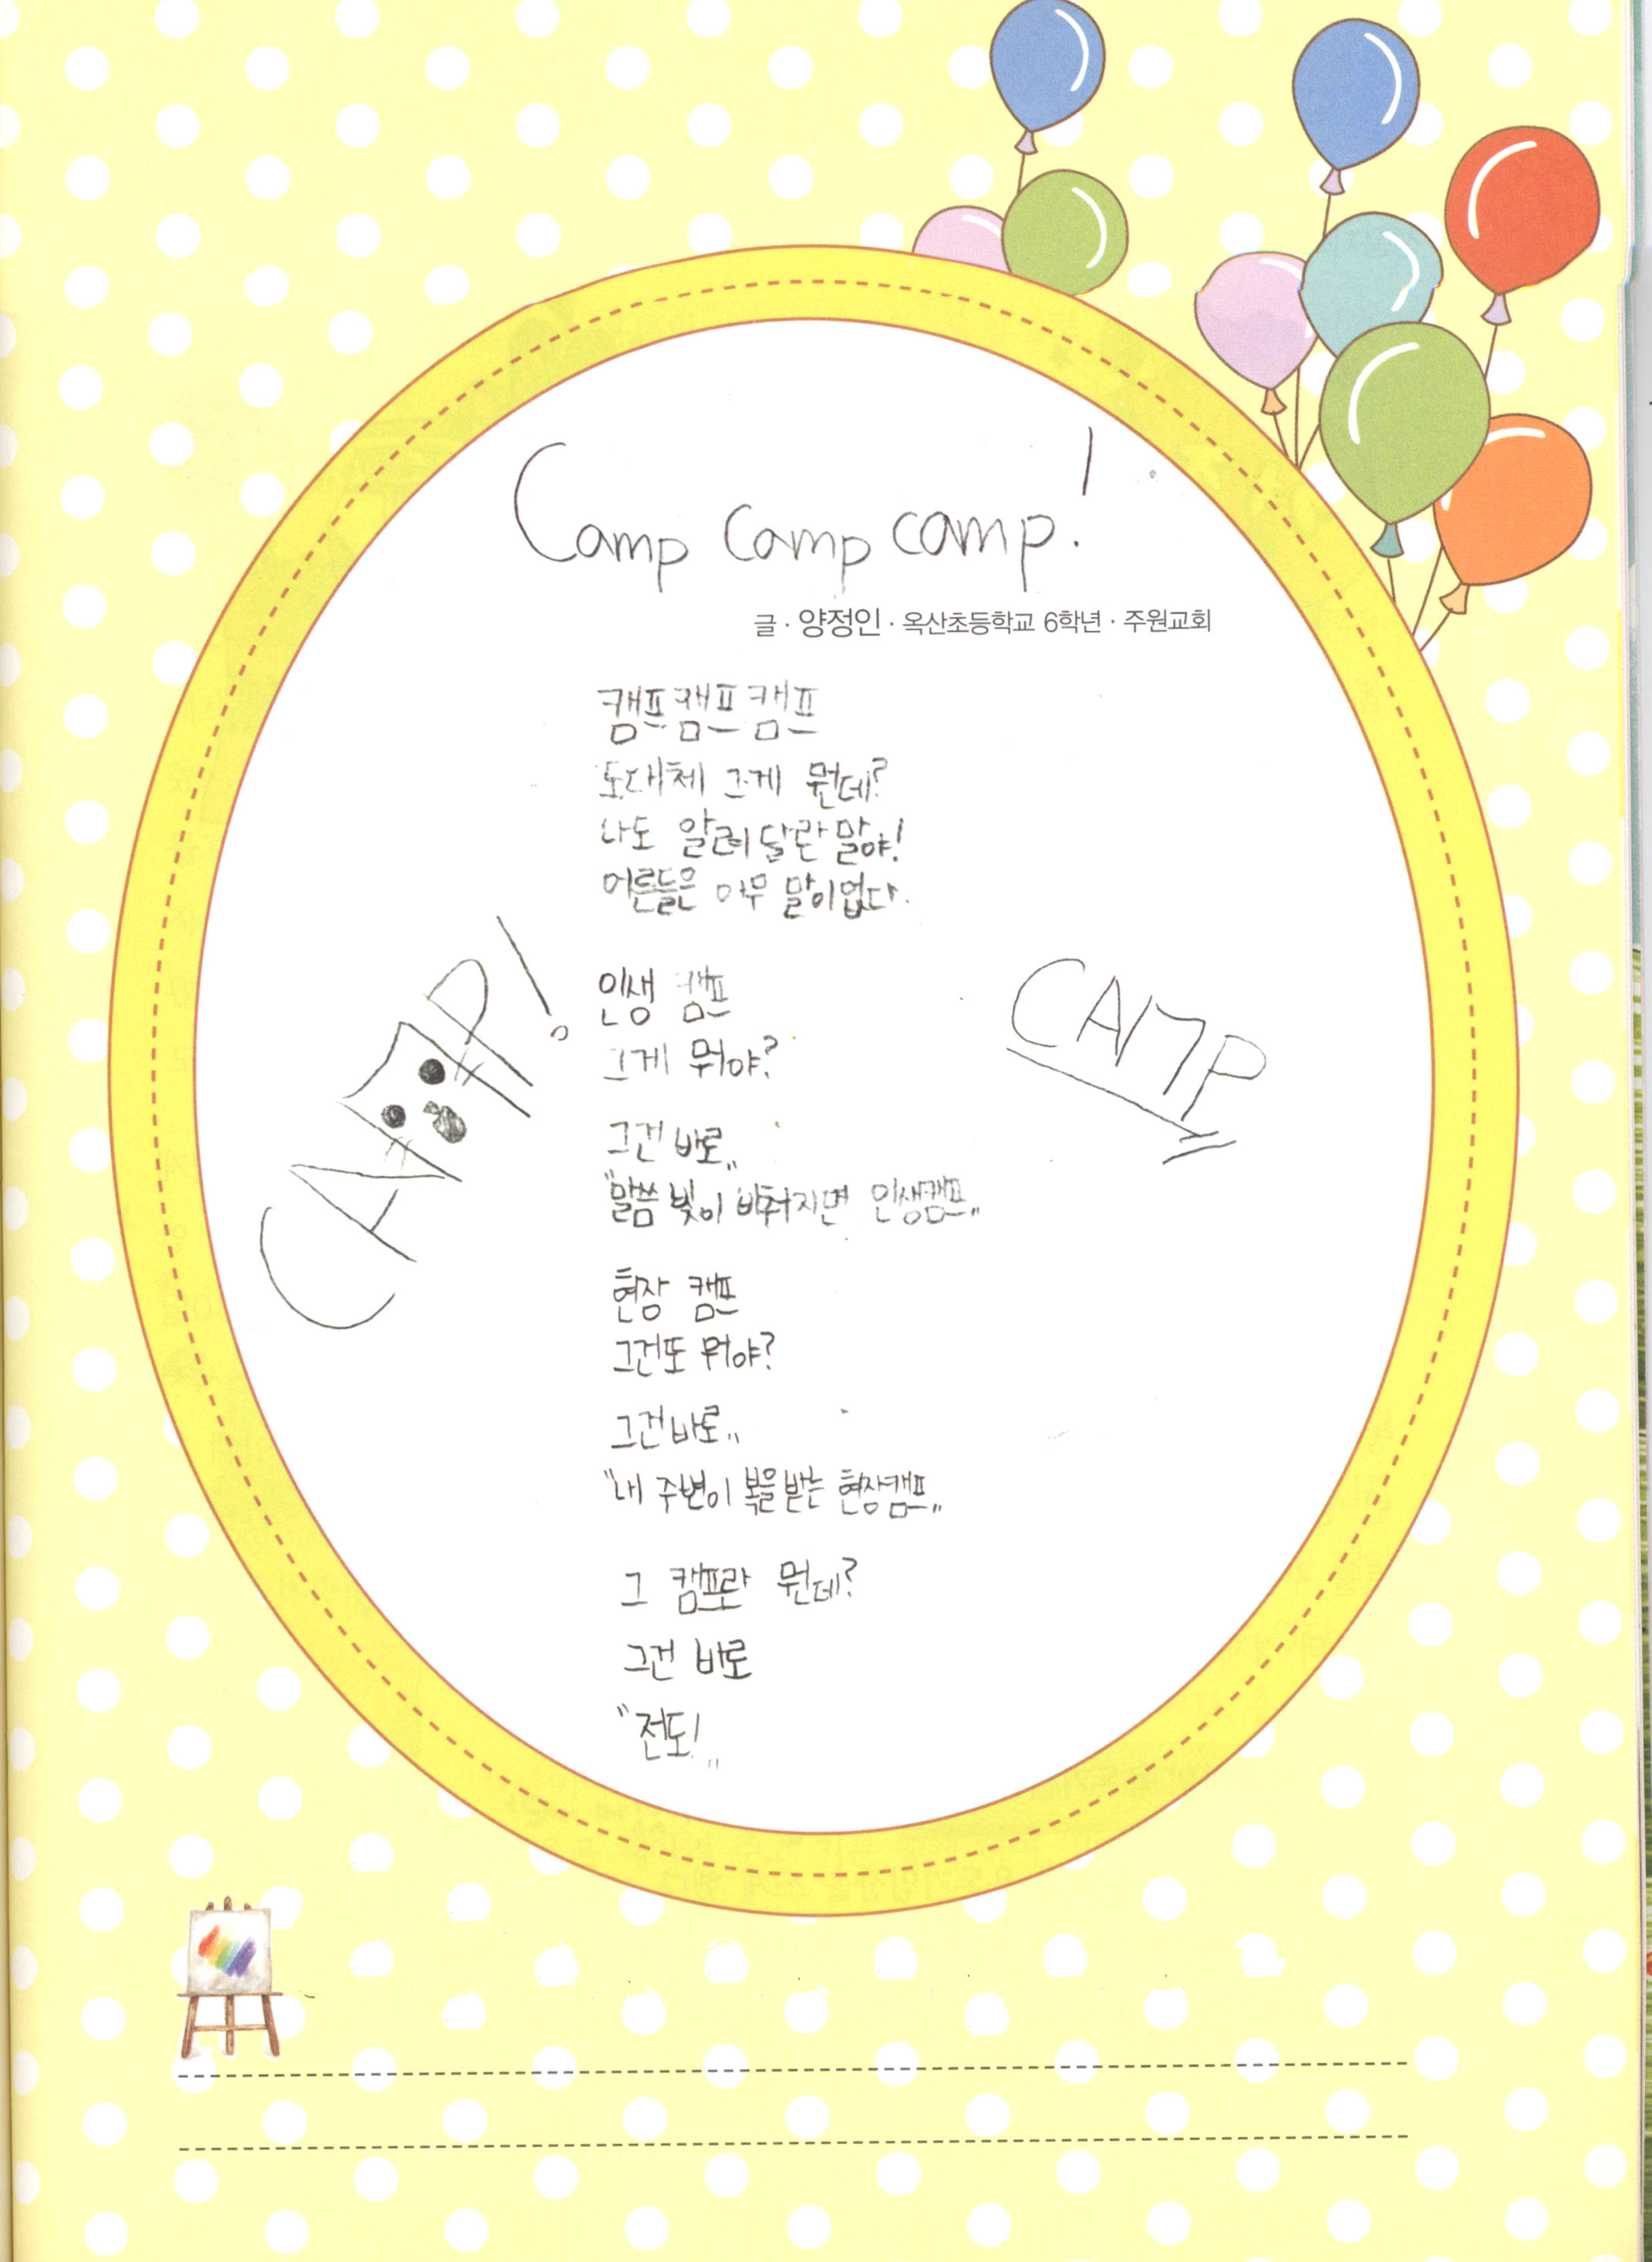 Camp Camp camp!
글 · 양정인 · 옥산초등학교 6학년 · 주원교회
캠프캠프캠프
도대체 그게 뭔데?
나도 알려달란말야!
어른들은 아무 말이없다.
인생 캠프
그게 뭐야?
그건 바로„
"말씀 빛이 비춰지면 인생캠프„
현장 캠프
그건또 뭐야?
그건바로„
"내 주변이 복을받는 현장캠프„
그 캠프란 뭔데?
그건 바로
"전도!„
CAMP!
CAMP